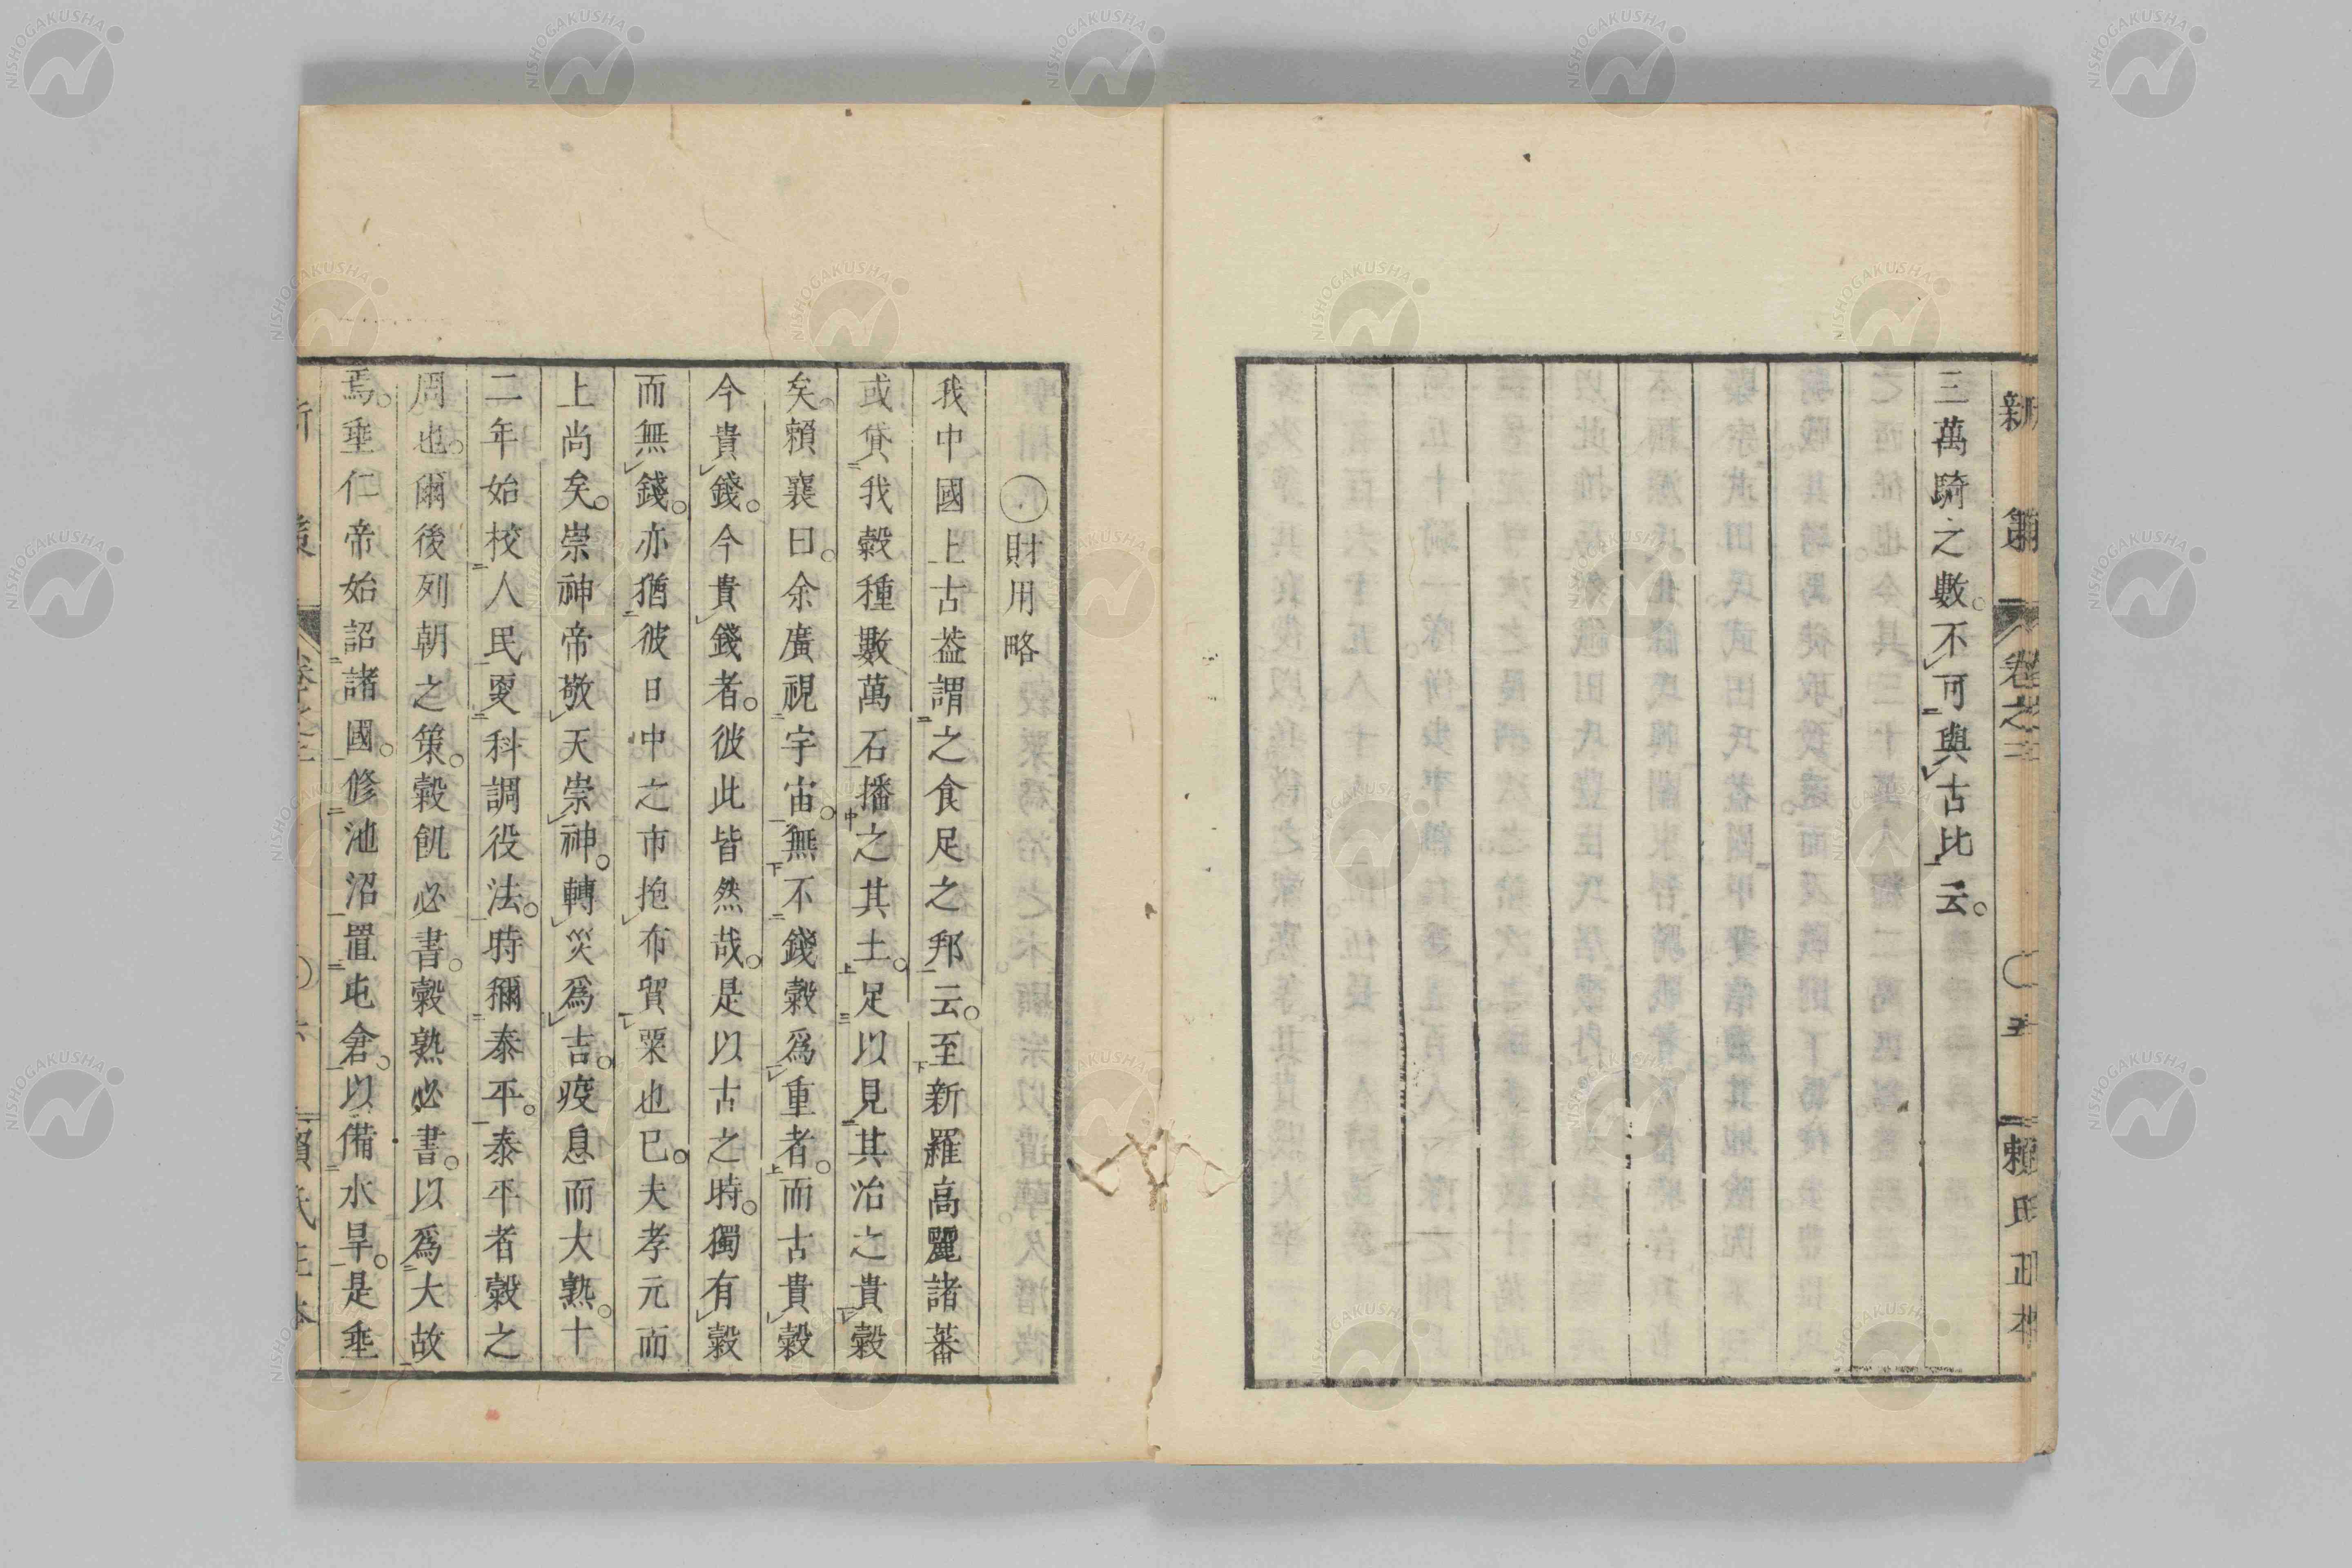 新策 卷之三 五 賴氏正本
三萬騎之數。不可與古比云。
財用略
我中國上古葢謂之食足之邦云。至新羅高麗諸蕃
或貸我穀種數萬石播之其土。足以見其治之貴穀
矣。賴襄曰。余廣視宇宙。無不錢穀爲重者。而古貴穀
今貴錢。今貴錢者。彼此皆然哉。是以古之時。獨有穀
而無錢。亦猶彼日中之市抱布貿粟也已。夫孝元而
上尚矣。崇神帝敬天崇神。轉災爲吉。疫息而大熟。十
二年始校人民更科調役法。時稱泰平。泰平者穀之
周也。爾後列朝之策。穀飢必書。穀熟必書。以爲大故
焉。垂仁帝始詔諸國。修池沼置屯倉。以備水旱。是垂
NISHOGAKUSHA